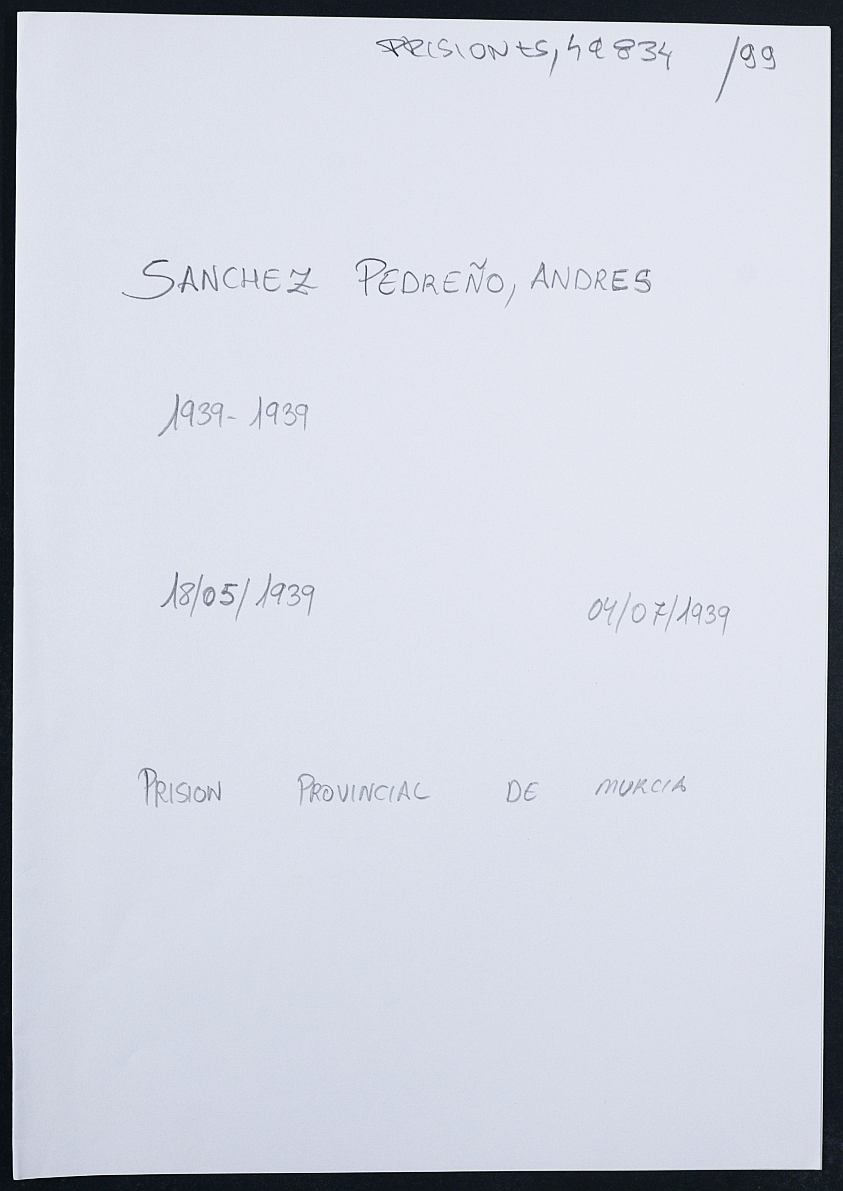 PRISIONES, 42834 /99
SANCHEZ PEDREÑO, ANDRES
1939- 1939
18/05/1939 04/07/1939
PRISION PROVINCIAL DE MURCIA